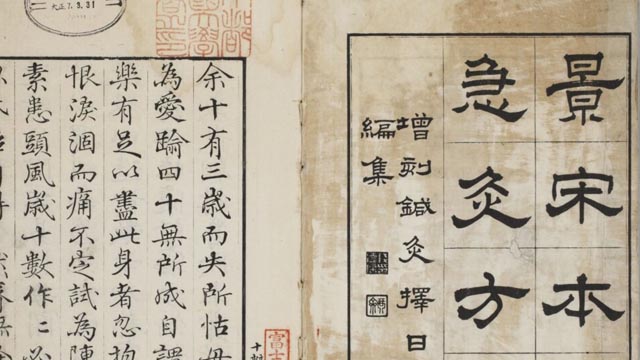 景宋本
急灸方
增刻鍼灸擇日
編集
余十有三歲而失所怙母
為愛踰四十無所成自謂
樂有足以盡此身者忽抱
恨淚涸而痛不定試為陳
素患頭風歲十數作〻必
大正7.3.31
富士